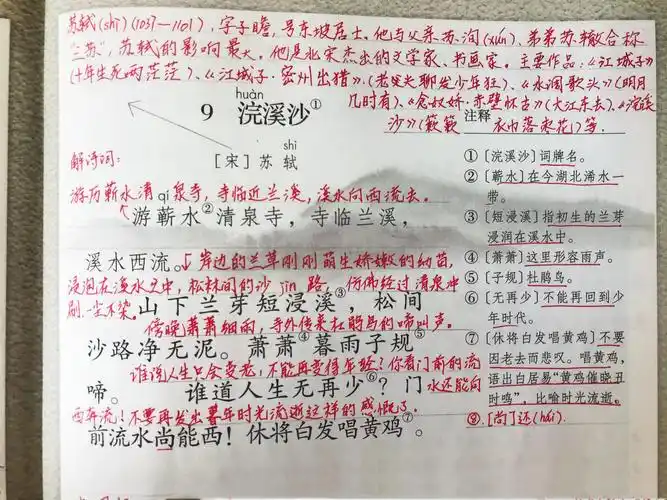 苏轼(shì)(1037—1101),字子瞻,号东坡居士,他与父亲苏洵(xún)、弟弟苏辙合称
"三苏",苏轼的影响最大。他是北宋杰出的文学家、书画家。主要作品:《江城子》
(十年生死两茫茫)、《江城子·密州出猎》(老夫聊发少年狂)、《水调歌头》(明月
几时有)、《念奴娇·赤壁怀古》(大江东去)、《浣溪
沙》(簌簌衣巾落枣花)等.
huàn
9 浣溪沙①
shì
[宋]苏 轼
解诗词:
游历蕲水清qí泉寺,寺临近兰溪,溪水向西流去。
游蕲水②清泉寺,寺临兰溪,
溪水西流。
岸边的兰草刚刚萌生娇嫩的幼苗,
浸泡在溪水之中,松林间的沙 jìn 路,仿佛经过清泉冲
刷,一尘不染。
山下兰芽短浸溪③,松间
傍晚萧萧细雨,寺外传来杜鹃鸟的啼叫声。
沙路净无泥。萧萧④暮雨子规⑤
谁说人生只会变老,不能再变得年轻?你看门前的流
啼。 谁道人生无再少⑥?门
水还能向
西奔流!不要再发出暮年时光流逝这样的感慨了.
前流水尚能西!休将白发唱黄鸡⑦。
注释
①〔浣溪沙〕词牌名。
②〔蕲水〕在今湖北浠水一
带。
③〔短浸溪〕指初生的兰芽
浸润在溪水中。
④〔萧萧〕这里形容雨声。
⑤〔子规〕杜鹃鸟。
⑥〔无再少〕不能再回到少
年时代。
⑦〔休将白发唱黄鸡〕不要
因老去而悲叹。唱黄鸡,
语出白居易"黄鸡催晓丑
时鸣",比喻时光流逝。
⑧.[尚]还(hái).